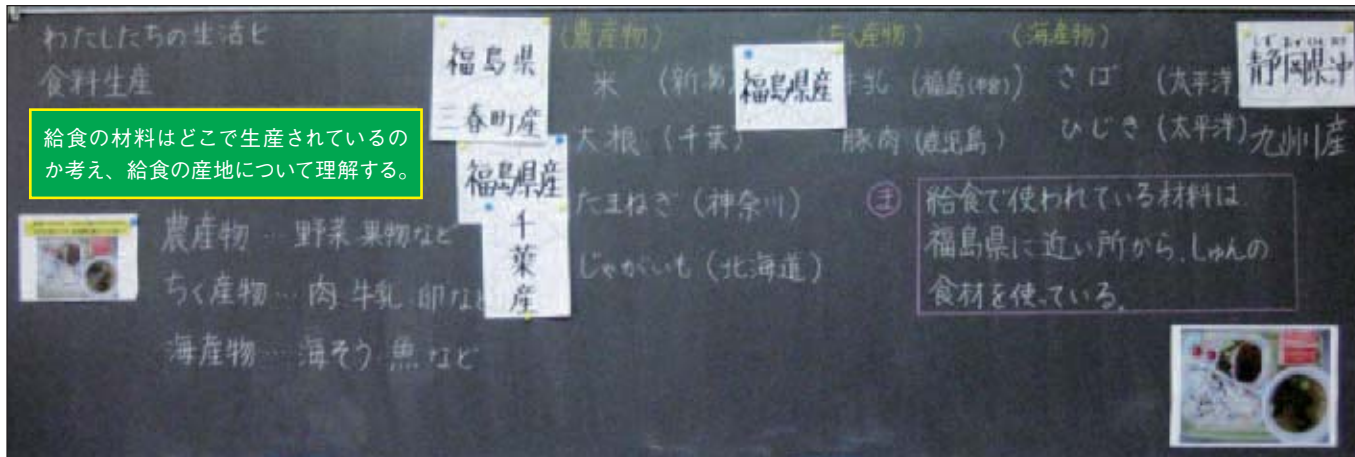 わたしたちの生活と
食料生産
給食の材料はどこで生産されているの
か考え、給食の産地について理解する。
農産物…野菜 果物など
ちく産物…肉 牛乳 卵など
海産物…海そう 魚など
福島県
三春町産
福島県産
千葉産
(農産物)
米 (新潟
大根 (千葉)
たまねぎ (神奈川)
じゃがいも (北海道)
(ちく産物)
福島県産
牛乳 (福島
豚肉 (鹿児島)
(海産物)
さば (太平洋
ひじき (太平洋)
静岡県沖
九州産
ま 給食で使われている材料は
福島県に近い所から、しゅんの
食材を使っている。